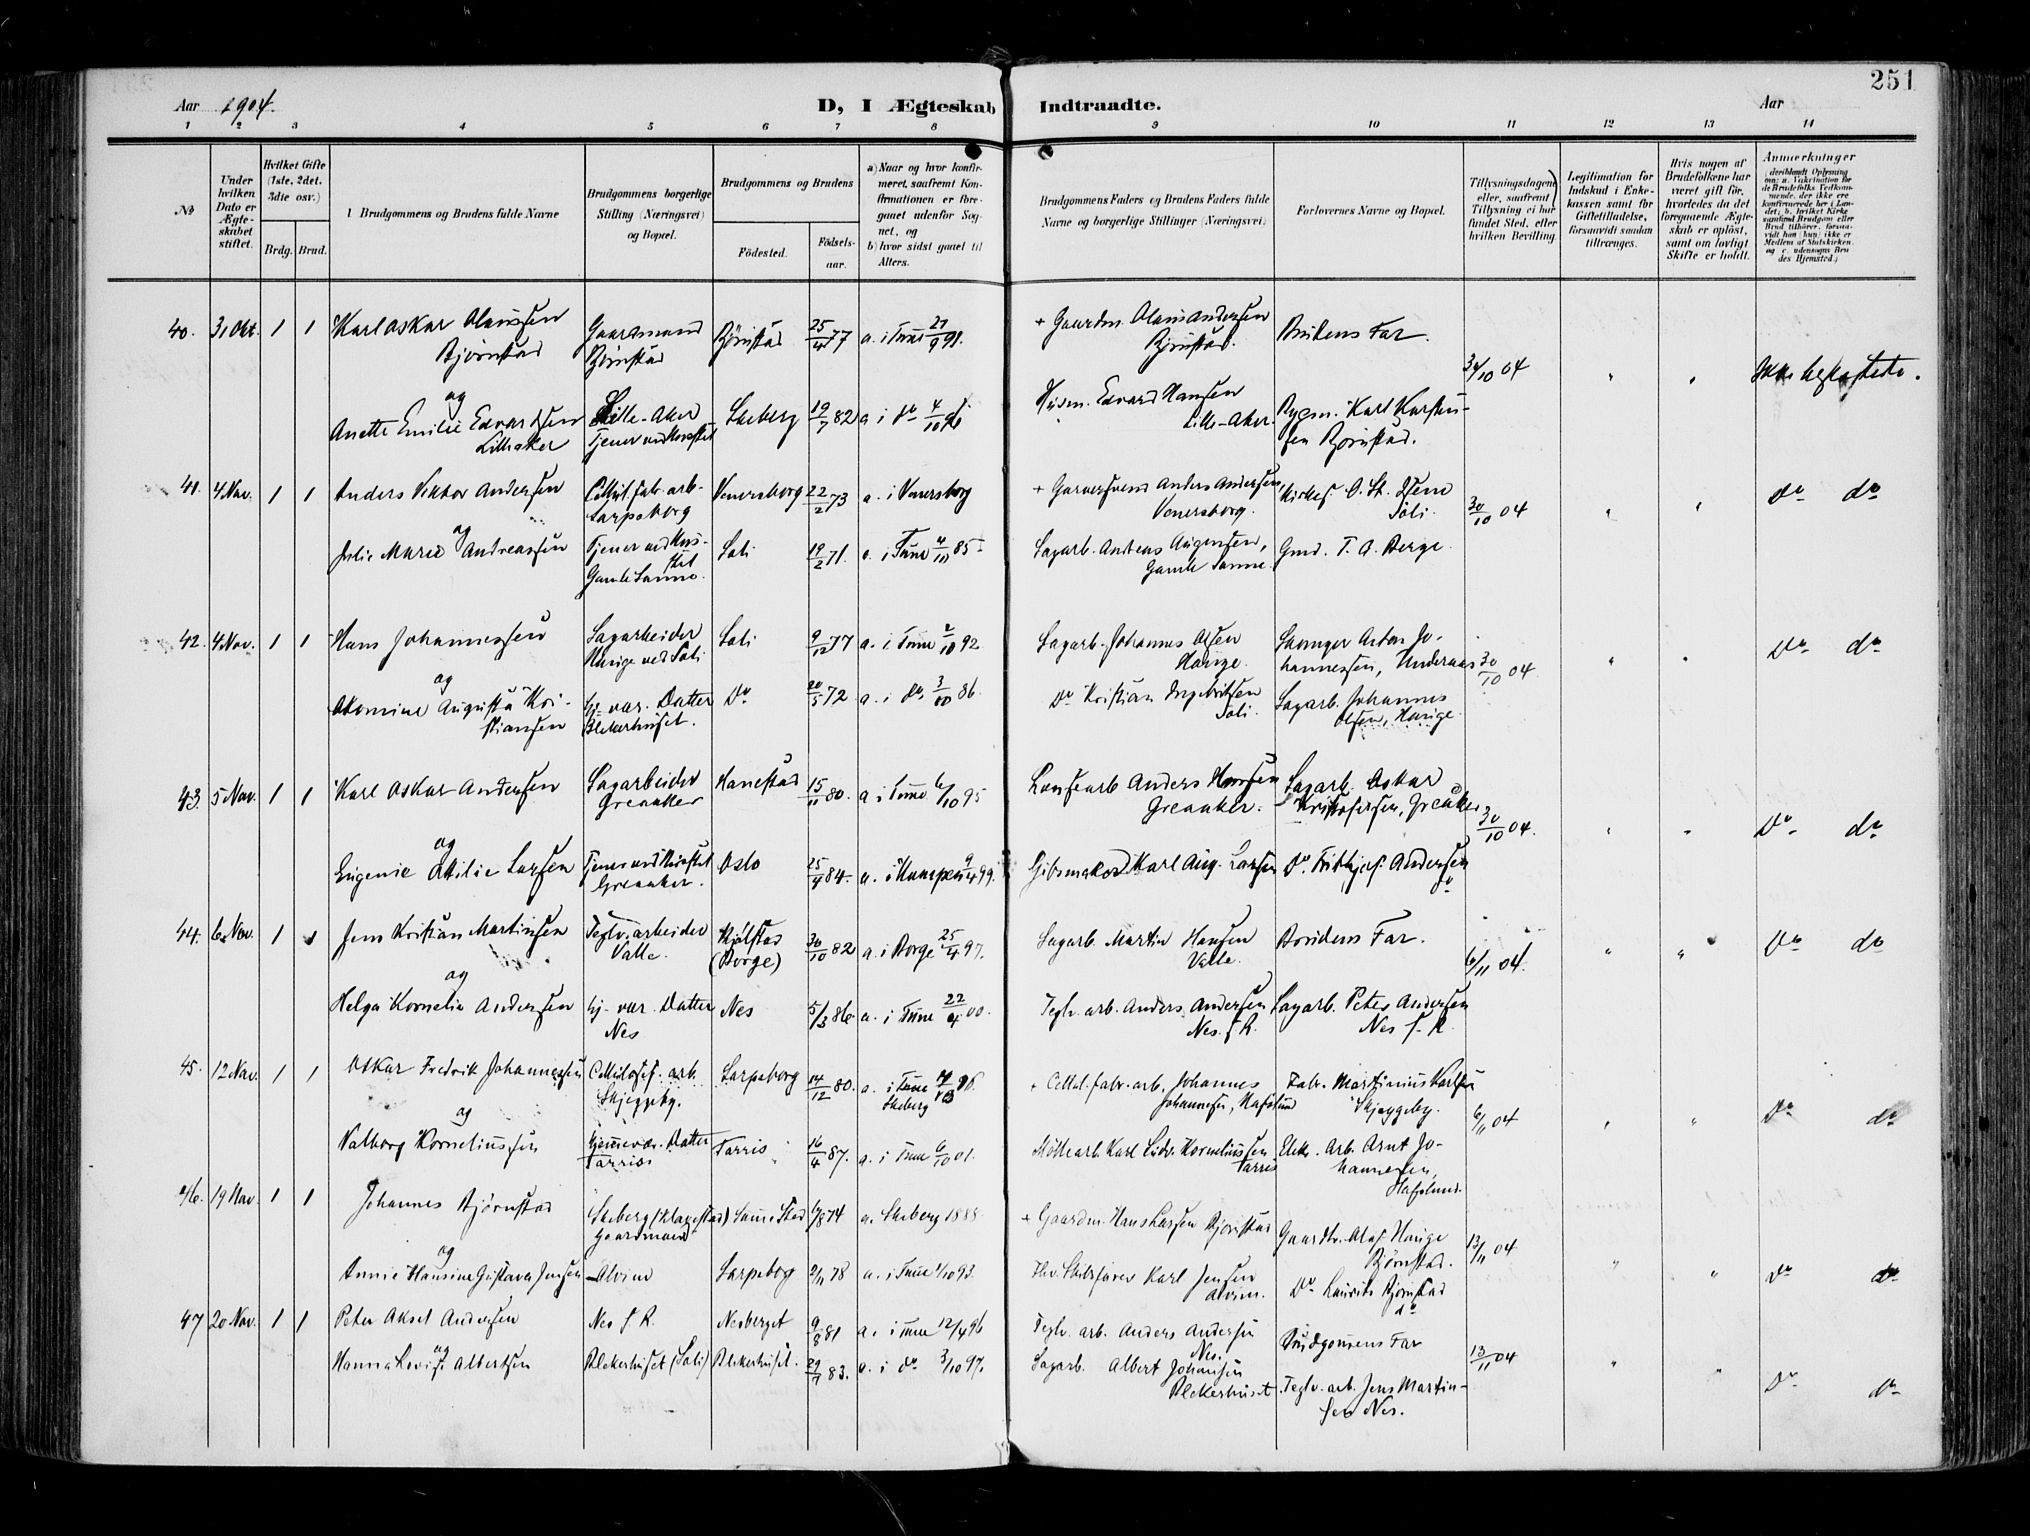 251
Aar 1904.
D, I Ægteskab Indtraadte.
Aar
1 2 3 4 5 6 7 8 9 10 11 12 13 14
No
Under hvilken Dato er Ægteskabet stiftet.
Hvilket Gifte (1ste, 2det, 3die osv.)
Brdg. Brud.
Brudgommens og Brudens fulde Navne
Brudgommens borgerlige Stilling (Næringsvei) og Bopæl.
Brudgommens og Brudens
Fødested.
Fødselsaar.
a) Naar og hvor konfirmeret, saafremt Konfirmationen er foregaaet udenfor Sognet, og
b) hvor sidst gaaet til Alters.
Brudgommens Faders og Brudens Faders fulde Navne og borgerlige Stillinger (Næringsvei)
Forlovernes Navne og Bopæl.
Tillysningsdagene eller, saafremt Tillysning ei har fundet Sted, efter hvilken Bevilling.
Legitimation for Indskud i Enkekassen samt for Giftetilladelse, forsaavidt saadan tiltrænges.
Hvis nogen af Brudefolkene har været gift før, hvorledes da det foregaaende Ægteskab er opløst, samt om lovligt Skifte er holdt.
Anmerkninger
(deriblandt Oplysning om: a. Vaksination for de Brudefolks Vedkommende, der ikke ere konfirmerede her i Landet; b. hvilket Kirkesamfund Brudgom eller Brud tilhører, forsaavidt han (hun) ikke er Medlem af Statskirken, og c. udensogns Brudes Hjemsted.)
40. 31 Okt. 1 1 Karl Oskar Olaussen Bjørnstad Gaardmand Bjørnstad Bjørnstad 25/4 77 a. i Tune 27/9 91. + Gaardm. Olaus Andersen Bjørnstad. Brudens Far. 30/10 04 " " Ikke beslægtede.
og
Anette Emilie Edvardsen Lilleaker Lille-Aker Tjener ved Huset Skeberg 19/7 82 a i do 4/10 96 Husm. Edvard Hansen Lille-Aker. Bygm. Karl Karstensen Bjørnstad.
41. 4 Nov. 1 1 Anders Viktor Andersen Cellul. fabr. arb. Sarpsborg Venersborg 22/2 73 a. i Venersborg + Garversvend Anders Andersen, Venersborg. Kirkes. O. St. Soli. 30/10 04 " " do do
og
Julie Marie Andreassen Tjener ved Huset Gamle Sanne. Soli 19/2 71. a. i Tune 4/10 85 Sagarb. Andreas Augensen, Gamle Sanne. Gmd. T. A. Berge.
42. 4 Nov. 1 1 Hans Johannessen Sagarbeider Hauge ved Soli Soli 9/12 77 a. i Tune 2/10 92 Sagarb. Johannes Olsen Hauge. Anton Johannessen, 30/10 04 " " Do do
og
Augusta Kristiansen hj. vær. Datter Blekerhuset. Do 20/5 72 a. i do 3/10 86. Do Kristian Ingebritsen Soli. Sagarb. Johannes Olsen, Hauge.
43. 5 Nov. 1 1 Karl Oskar Andersen Sagarbeider Greaaker Hanestad 15/11 80. a i Tune 6/10 95 Anders Hansen Greaaker. Sagarb. Oskar Kristofersen, Greaaker 30/10 04. " " Do do
og
Eugenie Otilie Larsen Tjener ved Huset Greaaker. Oslo 25/4 84. a. i Kampen 9/4 99. Gibsmaker Karl Aug. Larsen Do. Fridtjof Andersen do
44. 6 Nov. 1 1 Jens Kristian Martinsen Teglv. arbeider Valle. Kjølstad (Borge) 30/10 82 a. i Borge 25/4 97. Sagarb. Martin Hansen Valle. Brudens Far. 6/11 04. " " Do do
og
Helga Kornelia Andersen hj. vær. Datter Nes Nes 5/3 86. a. i Tune 22/4 00. Teglv. arb. Anders Andersen Nes. f. R. Sagarb. Peter Andersen Nes f. R.
45. 12 Nov. 1 1 Oskar Fredrik Johannessen Cellulosef. arb. Skjeggeby. Sarpsborg 14/12 80. a. i Tune Skeberg + Cellul. fabr. arb. Johannes Johannesen, Hafslund Fabr. Martinius Karlsen Skjeggeby. 6/11 04 " " Do do
og
Valborg Korneliussen hjemmevær. Datter Tarris Tarris 16/4 87. a. i Tune 6/10 01. Møllearb. Karl Ludv. Korneliussen Tarris Elekr. Arb. Arnt Johannesen, Hafslund.
46. 19 Nov. 1 1 Johannes Bjørnstad Skeberg (Klavestad) Gaardmand Samme Sted 6/8 74 a. Skeberg 1888. + Gaardm. Hans Larsen Bjørnstad Gaardbr. Olaf Hauge Bjørnstad. 13/11 04 " " Do do
og
Annie Hansine Gustava Jensen Alvim Sarpsborg 2/11 78 a. i Tune 1/10 93. Skibsfører Karl Jensen Alvim. Do Lauritz Bjørnstad do
47 20 Nov. 1 1 Peter Aksel Andersen Nes f. R. Nesberget 9/8 81 a. i Tune 12/4 96 Teglv. arb. Anders Andersen Nes. Brudgommens Far 13/11 04 " " Do do
og
Hanna Lovise Albertsen Blekerhuset (Soli) Blekerhuset. 29/7 83. a. i do 3/10 97. Sagarb. Albert Johansen Blekerhuset. Teglv. arb. Jens Martinsen Nes.